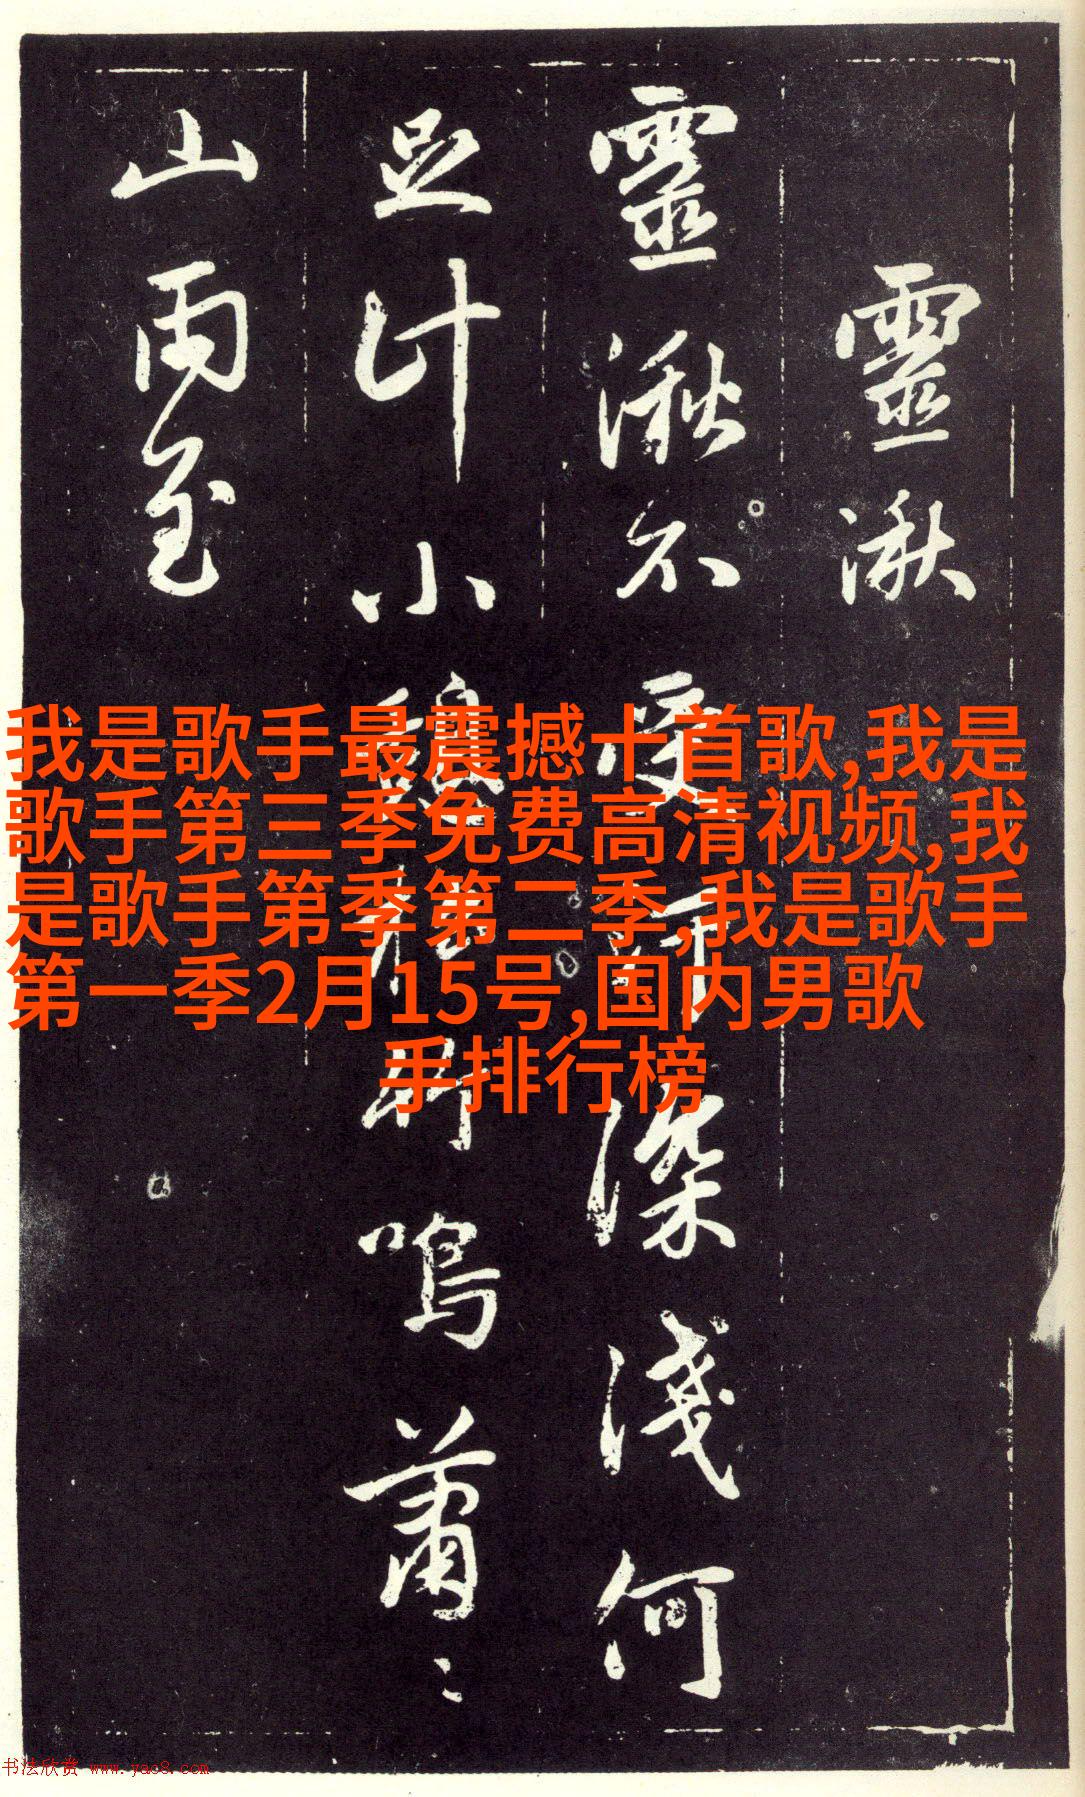 靈湫
靈湫不受深淺何
足計小鳴蕭〻
山雨至
我是歌手最震撼十首歌,我是
歌手第三季免费高清视频,我
是歌手第季第二季,我是歌手
第一季2月15号,国内男歌
手排行榜
书法欣赏 www.yac8.com